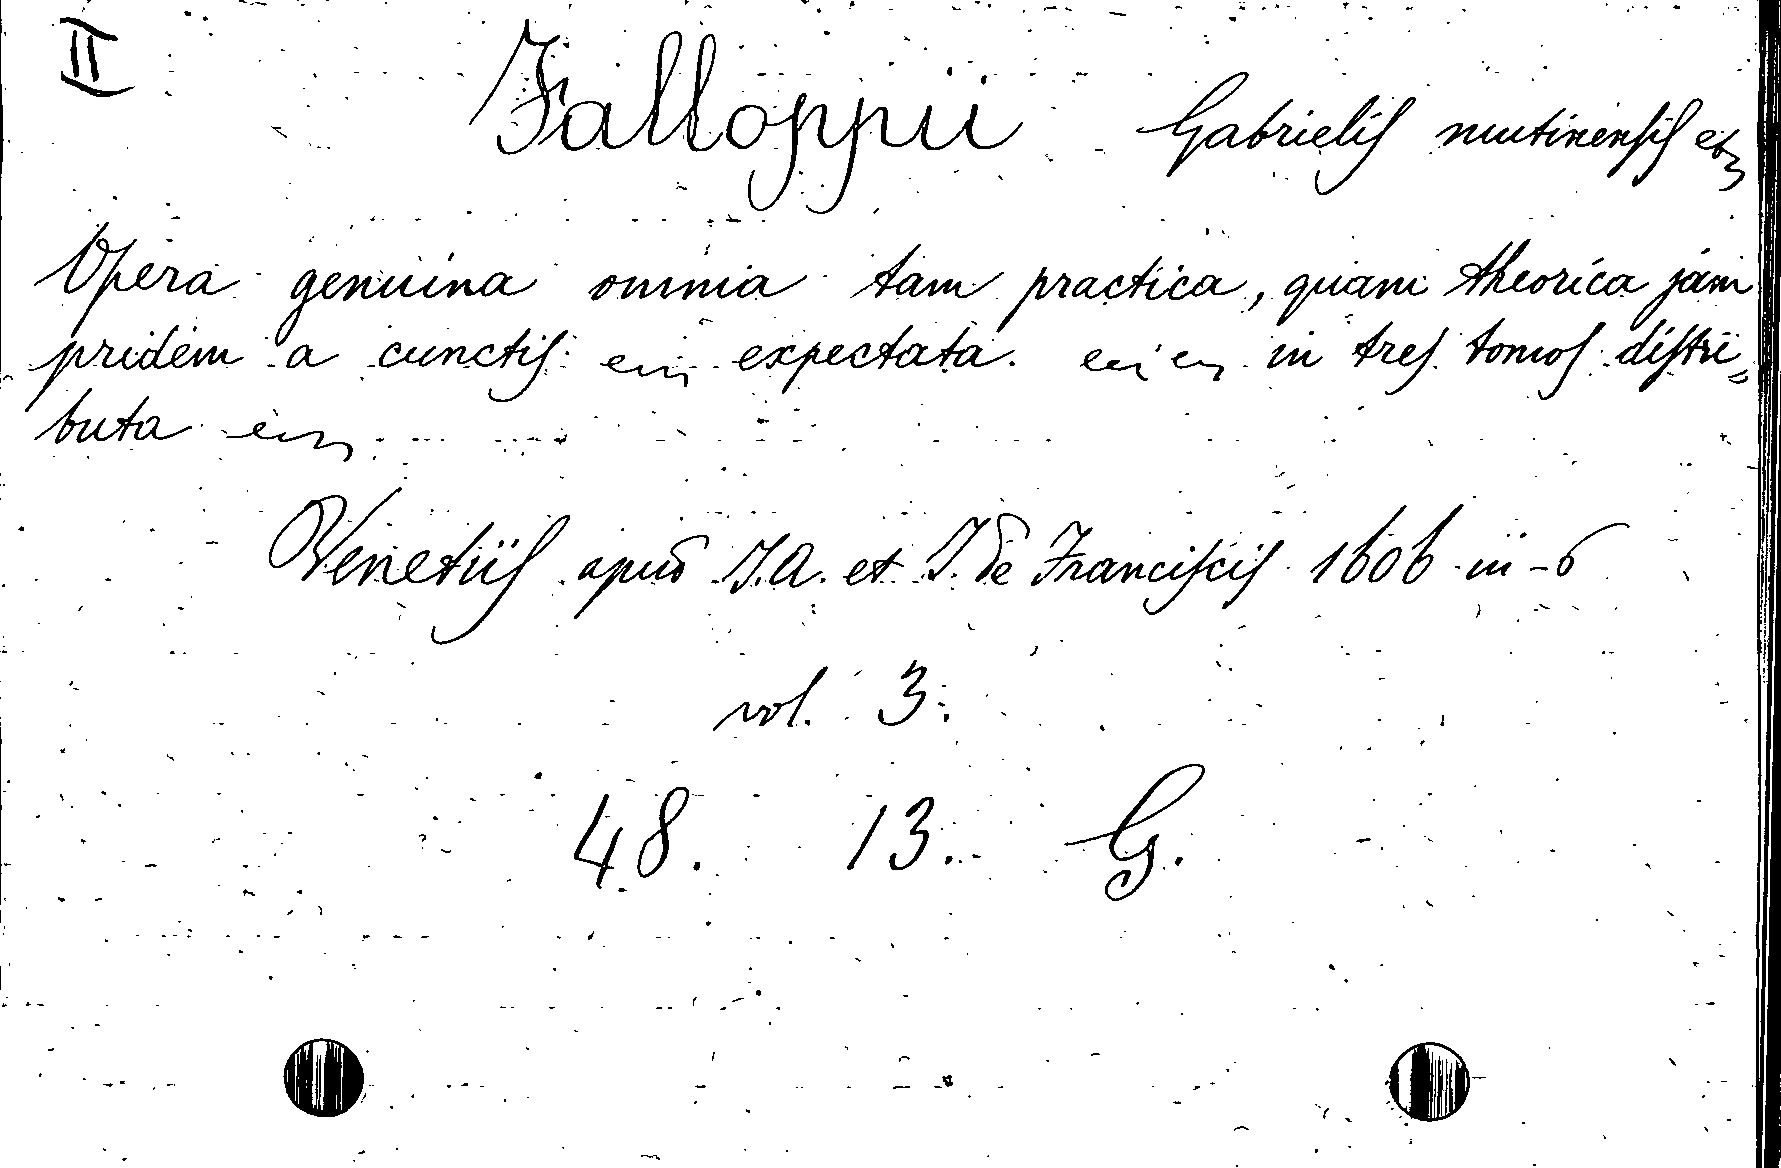 II
Falloppii Gabrielis mutinensis etc
Opera genuina omnia tam practica, quam theorica jam
pridem a cunctis expectata. in tres tomos distri„
buta
Venetiis apud J.A. et J. de Franciscis 1606 in-6
vol. 3.
48. 13. G.